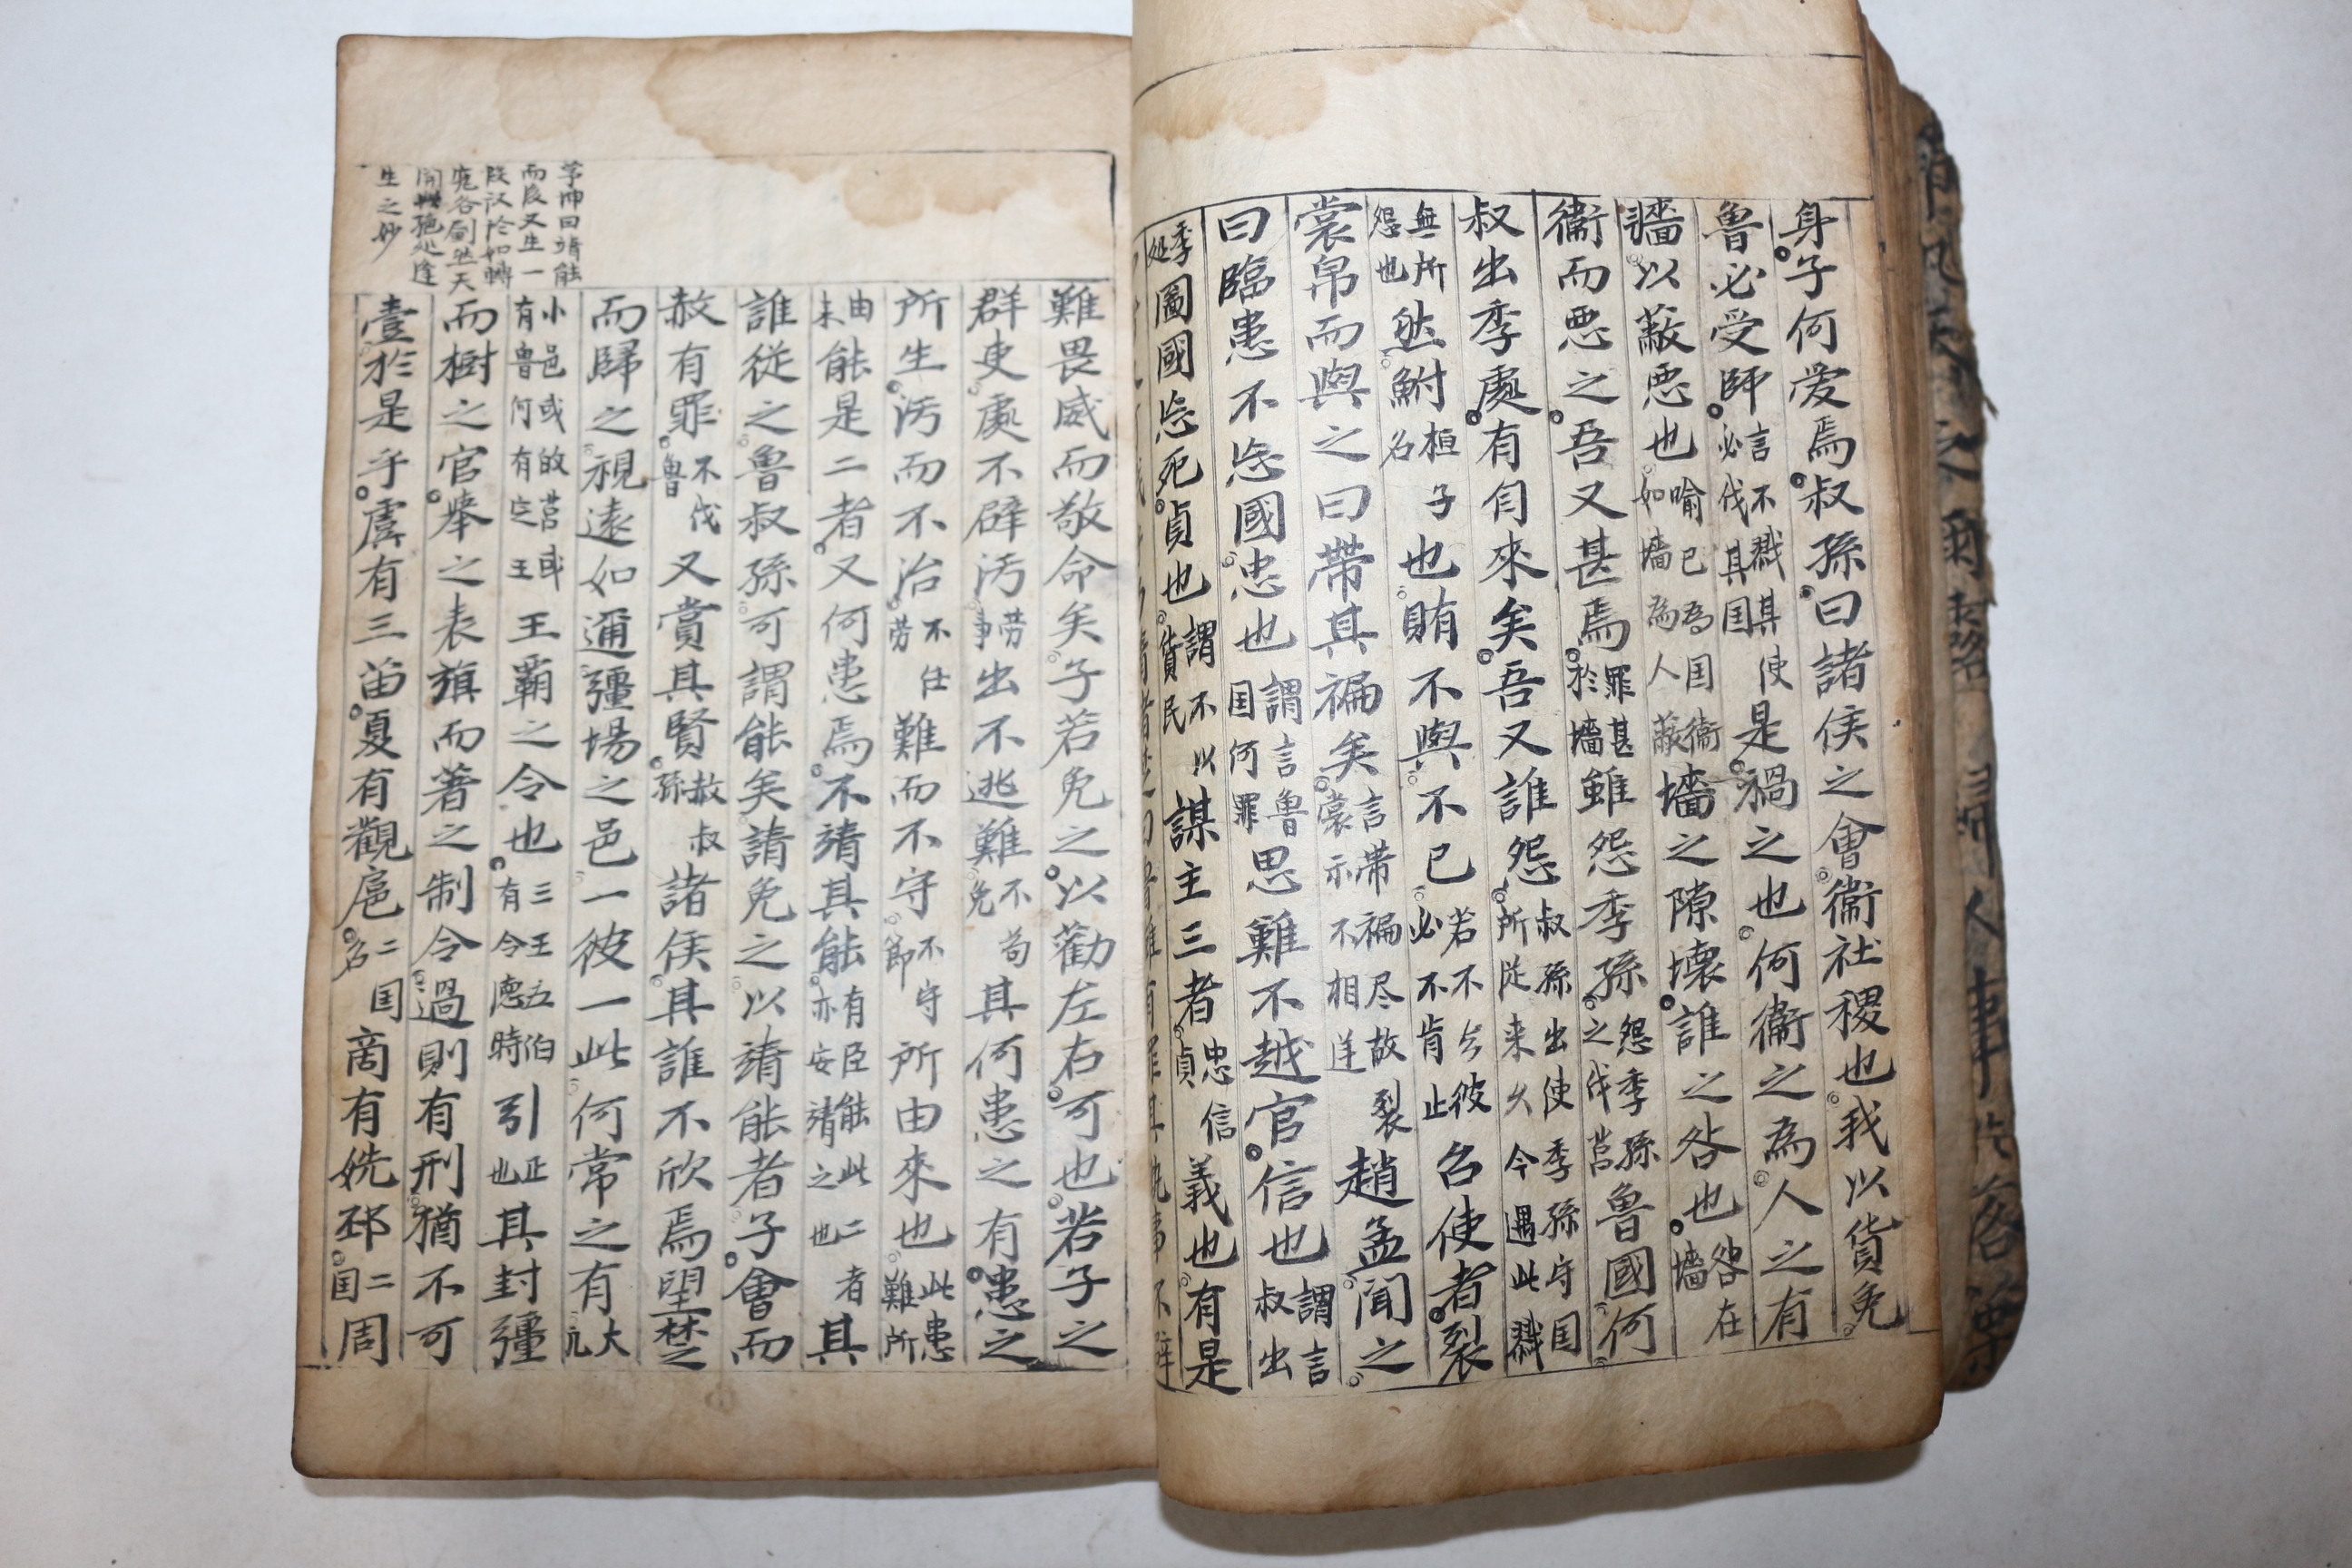 身子何愛焉叔孫曰諸侯之會衞社稷也我以貨免
魯必受師言不戮其使必伐其国是禍之也何衞之為人之有
牆以蔽惡也喻己為国衞如墻為人蔽墻之隙壞誰之咎也咎在墻
衞而惡之吾又甚焉罪甚於墻雖怨季孫怨季孫之伐莒魯國何
叔出季處有自來矣吾又誰怨叔孫出使季孫守国所従来久今遇此戮
無所怨也然鮒桓子名也賄不與不已若不与彼必不肯止召使者裂
裳帛而與之曰帶其褊矣言帶褊尽故裂裳示不相逆趙孟聞之
曰臨患不忘國忠也謂言魯国何罪思難不越官信也謂言叔出
季処圖國忘死貞也謂不以貨民謀主三者忠信貞義也有是
難畏威而敬命矣子若免之以勸左右可也若子之
群吏處不辟汚勞事出不逃難不苟免其何患之有患之
所生汚而不治不任勞難而不守不守節所由來也此患難所
由未能是二者又何患焉不靖其能有臣能此二者亦安靖之也其
誰從之魯叔孫可謂能矣請免之以靖能者子會而
赦有罪不伐魯又賞其賢赦叔孫諸侯其誰不欣焉望楚
而歸之視遠如邇疆場之邑一彼一此何常之有大
小邑或故莒或有魯何有定王王霸之令也三王五伯有令德時引正也其封疆
而樹之官擧之表旗而著之制令過則有刑猶不可
壹於是乎虞有三苗夏有觀扈二国名商有姺邳二国周